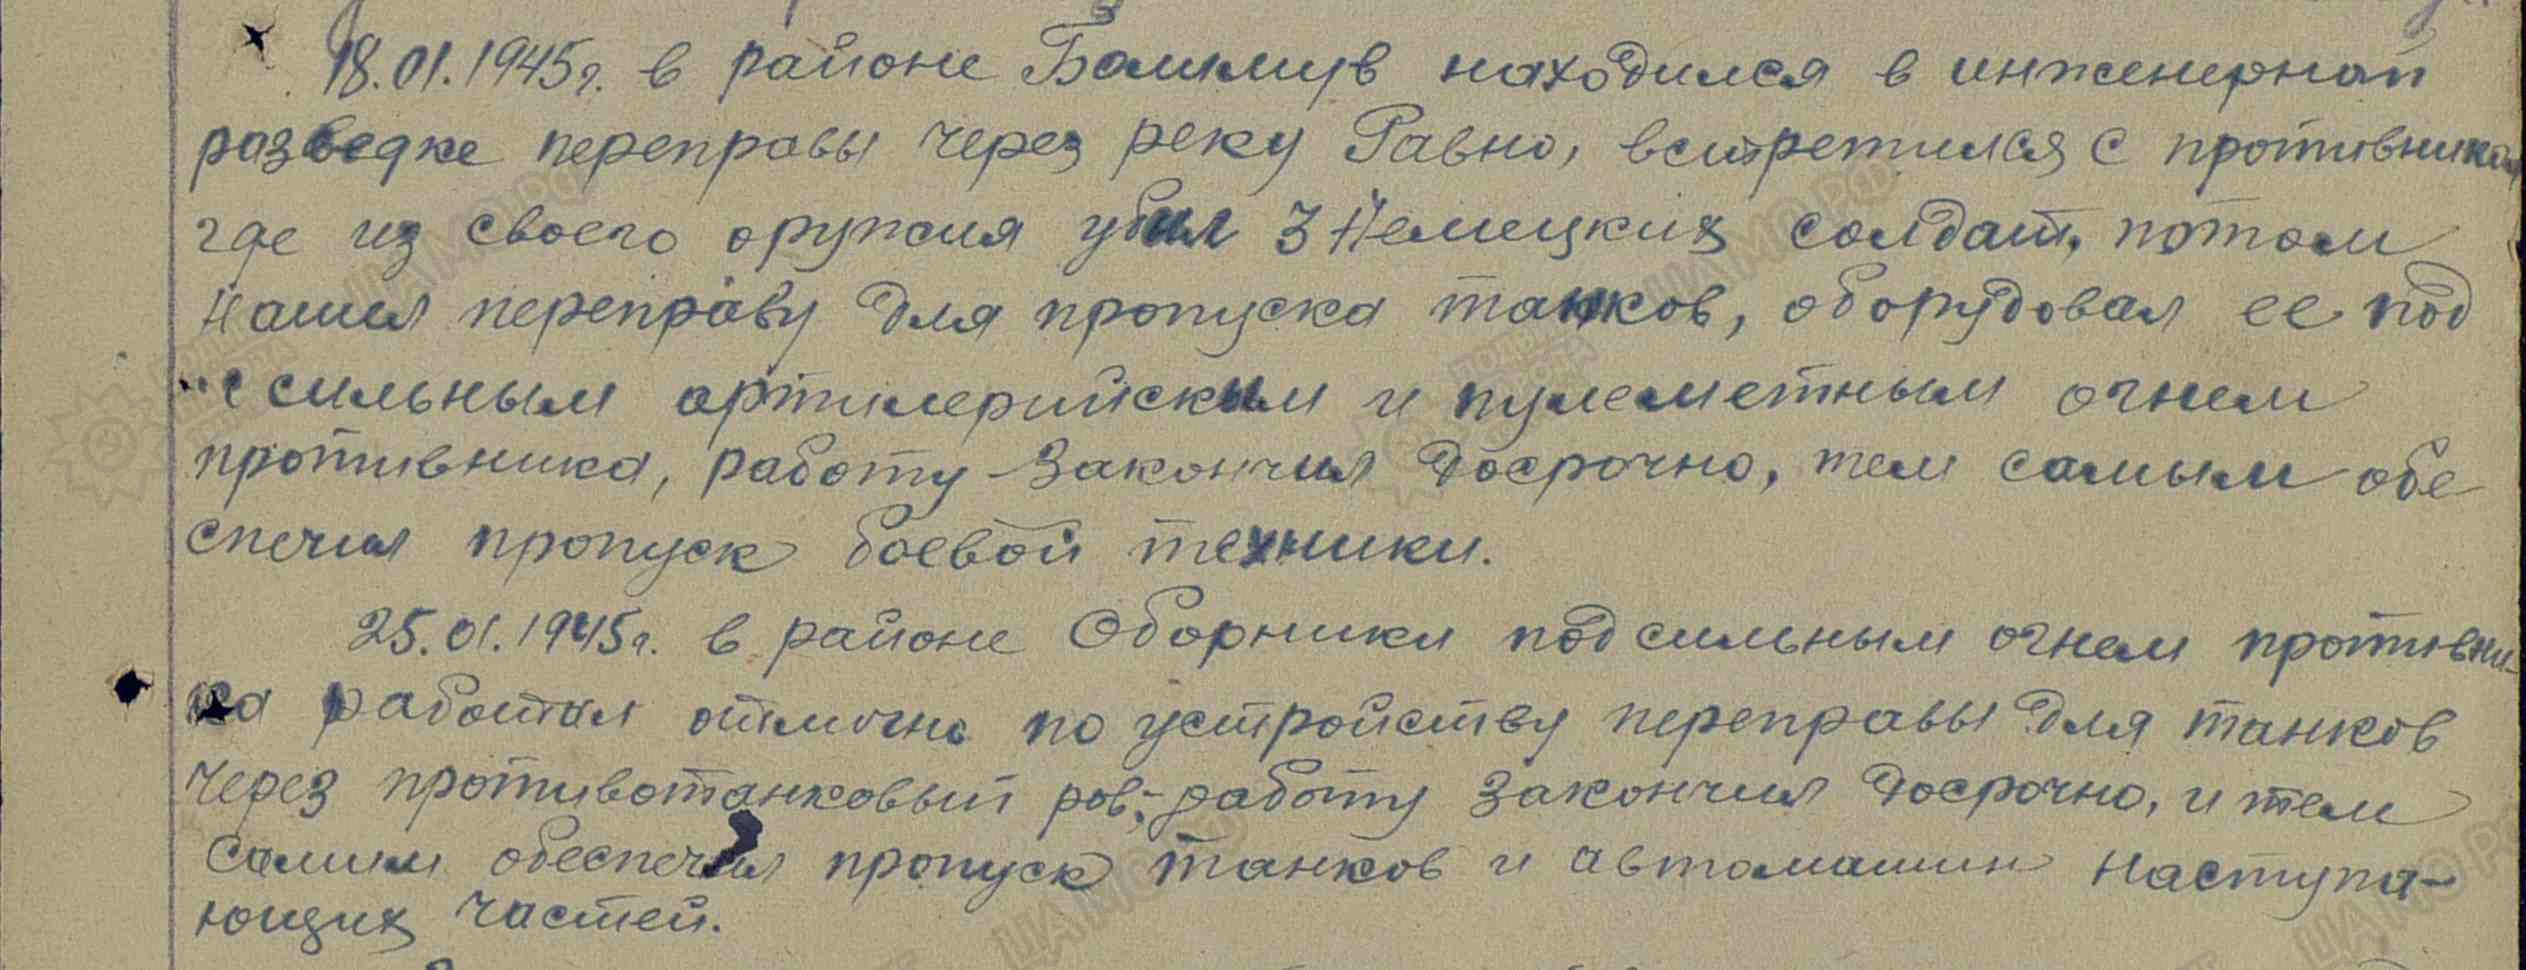 18.01.1945г. в районе Болимув находился в инженерной
разведке переправы через реку Равно, встретился с противником
где из своего оружия убил 3 Немецких солдат, потом
нашел переправу для пропуска танков, оборудовал ее под
сильным артилерийским и пулеметным огнем
противника, работу закончил досрочно, тем самым обе
спечил пропуск боевой техники.
25.01.1945г. в районе Оборники под сильным огнем противни-
ка работал отлично по устройству переправы для танков
через противотанковый ров, работу закончил досрочно, и тем
самим обеспечил пропуск танков и автомашин наступа-
ющих частей.